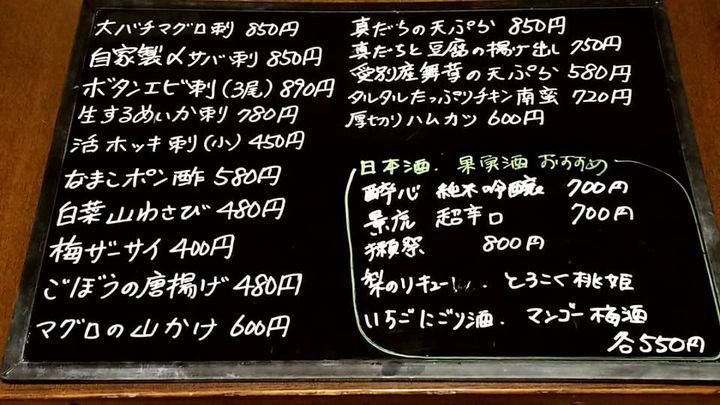 大バチマグロ刺 850円
自家製〆サバ刺 850円
ボタンエビ刺(3尾) 890円
生するめいか刺 780円
活ホッキ刺(小) 450円
なまこポン酢 580円
白葉山わさび 480円
梅ザーサイ 400円
ごぼうの唐揚げ 480円
マグロの山かけ 600円
真だちの天ぷら 850円
真だちと豆腐の揚げ出し 750円
愛別産舞茸の天ぷら 580円
タルタルたっぷりチキン南蛮 720円
厚切りハムカツ 600円
日本酒.果実酒おすすめ
酔心 純米吟醸 700円
景虎 超辛口 700円
獺祭 800円
梨のリキュール. とろこく桃姫
いちごにごり酒. マンゴー梅酒
各550円